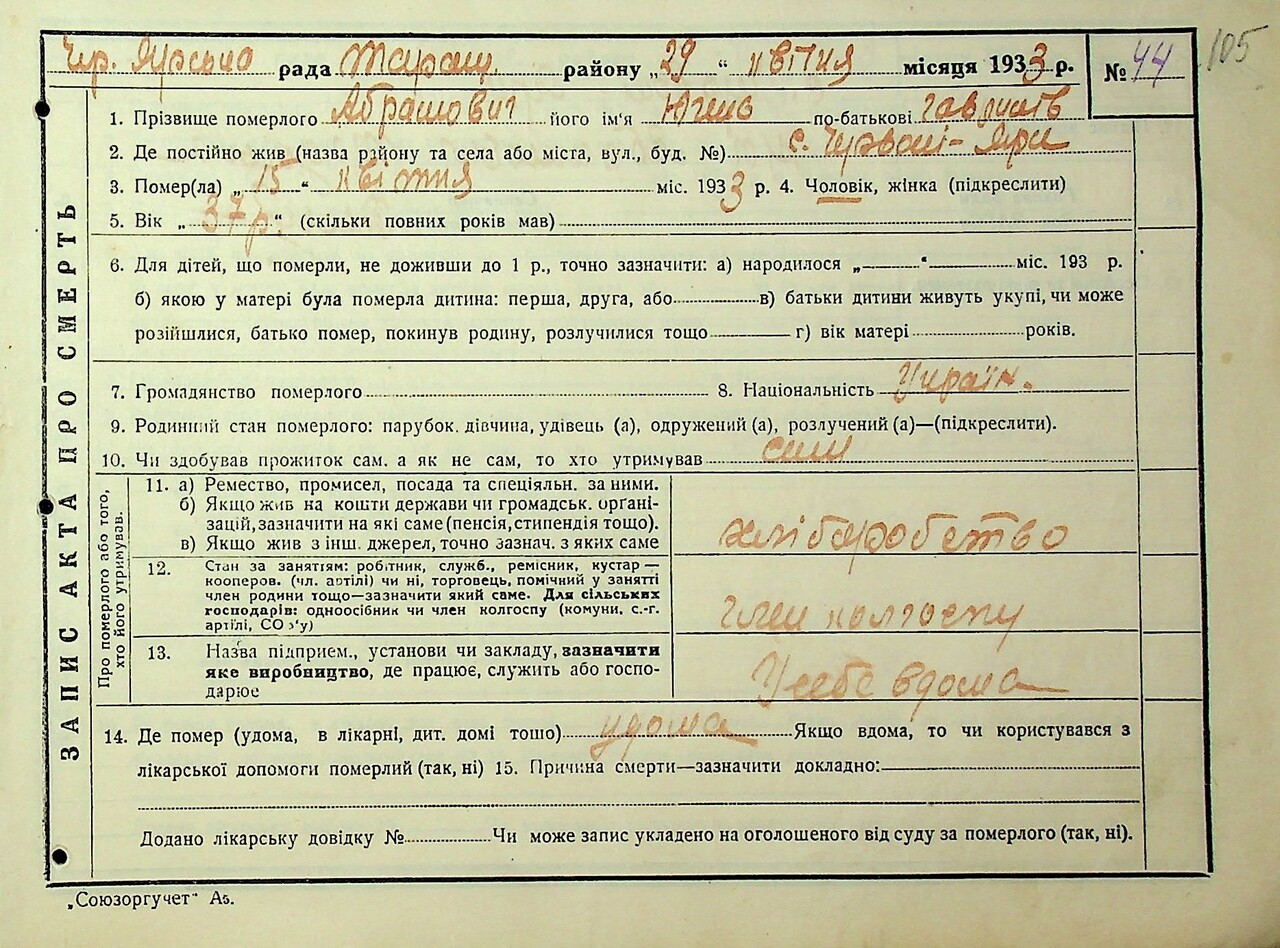 Чер. Ярська рада Таращ. району „29" квітня місяця 1933 р. № 44
105
1. Прізвище померлого Абрамович його ім'я по-батькові
2. Де постійно жив (назва району та села або міста, вул., буд. №) с. Червоні-Яри
3. Помер(ла) „15" квітня міс. 1933 р. 4. Чоловік, жінка (підкреслити)
5. Вік „37 р." (скільки повних років мав)
6. Для дітей, що померли, не доживши до 1 р., точно зазначити: а) народилося „ " міс. 193 р.
б) якою у матері була померла дитина: перша, друга, або в) батьки дитини живуть укупі, чи може
розійшлися, батько помер, покинув родину, розлучилися тощо г) вік матері років.
7. Громадянство померлого 8. Національність Україн.
9. Родинний стан померлого: парубок. дівчина, удівець (а), одружений (а), розлучений (а)—(підкреслити).
10. Чи здобував прожиток сам. а як не сам, то хто утримував сам
ЗАПИС АКТА ПРО СМЕРТЬ
Про померлого або того,
хто його утримував.
11. а) Ремество, промисел, посада та спеціяльн. за ними.
б) Якщо жив на кошти держави чи громадськ. органі-
зацій, зазначити на які саме (пенсія, стипендія тощо).
в) Якщо жив з інш. джерел, точно зазнач. з яких саме
хліборобство
12. Стан за занятям: робітник, служб., ремісник, кустар—
кооперов. (чл. артілі) чи ні, торговець, помічний у занятті
член родини тощо—зазначити який саме. Для сільських
господарів: одноосібник чи член колгоспу (комуни, с.-г.
артілі, СО З'у)
член колгоспу
13. Назва підприєм., установи чи закладу, зазначити
яке виробництво, де працює, служить або госпо-
дарює
У себе вдома
14. Де помер (удома, в лікарні, дит. домі тощо) удома Якщо вдома, то чи користувався з
лікарської допомоги померлий (так, ні) 15. Причина смерти—зазначити докладно:
Додано лікарську довідку № Чи може запис укладено на оголошеного від суду за померлого (так, ні).
„Союзоргучет" Аз.